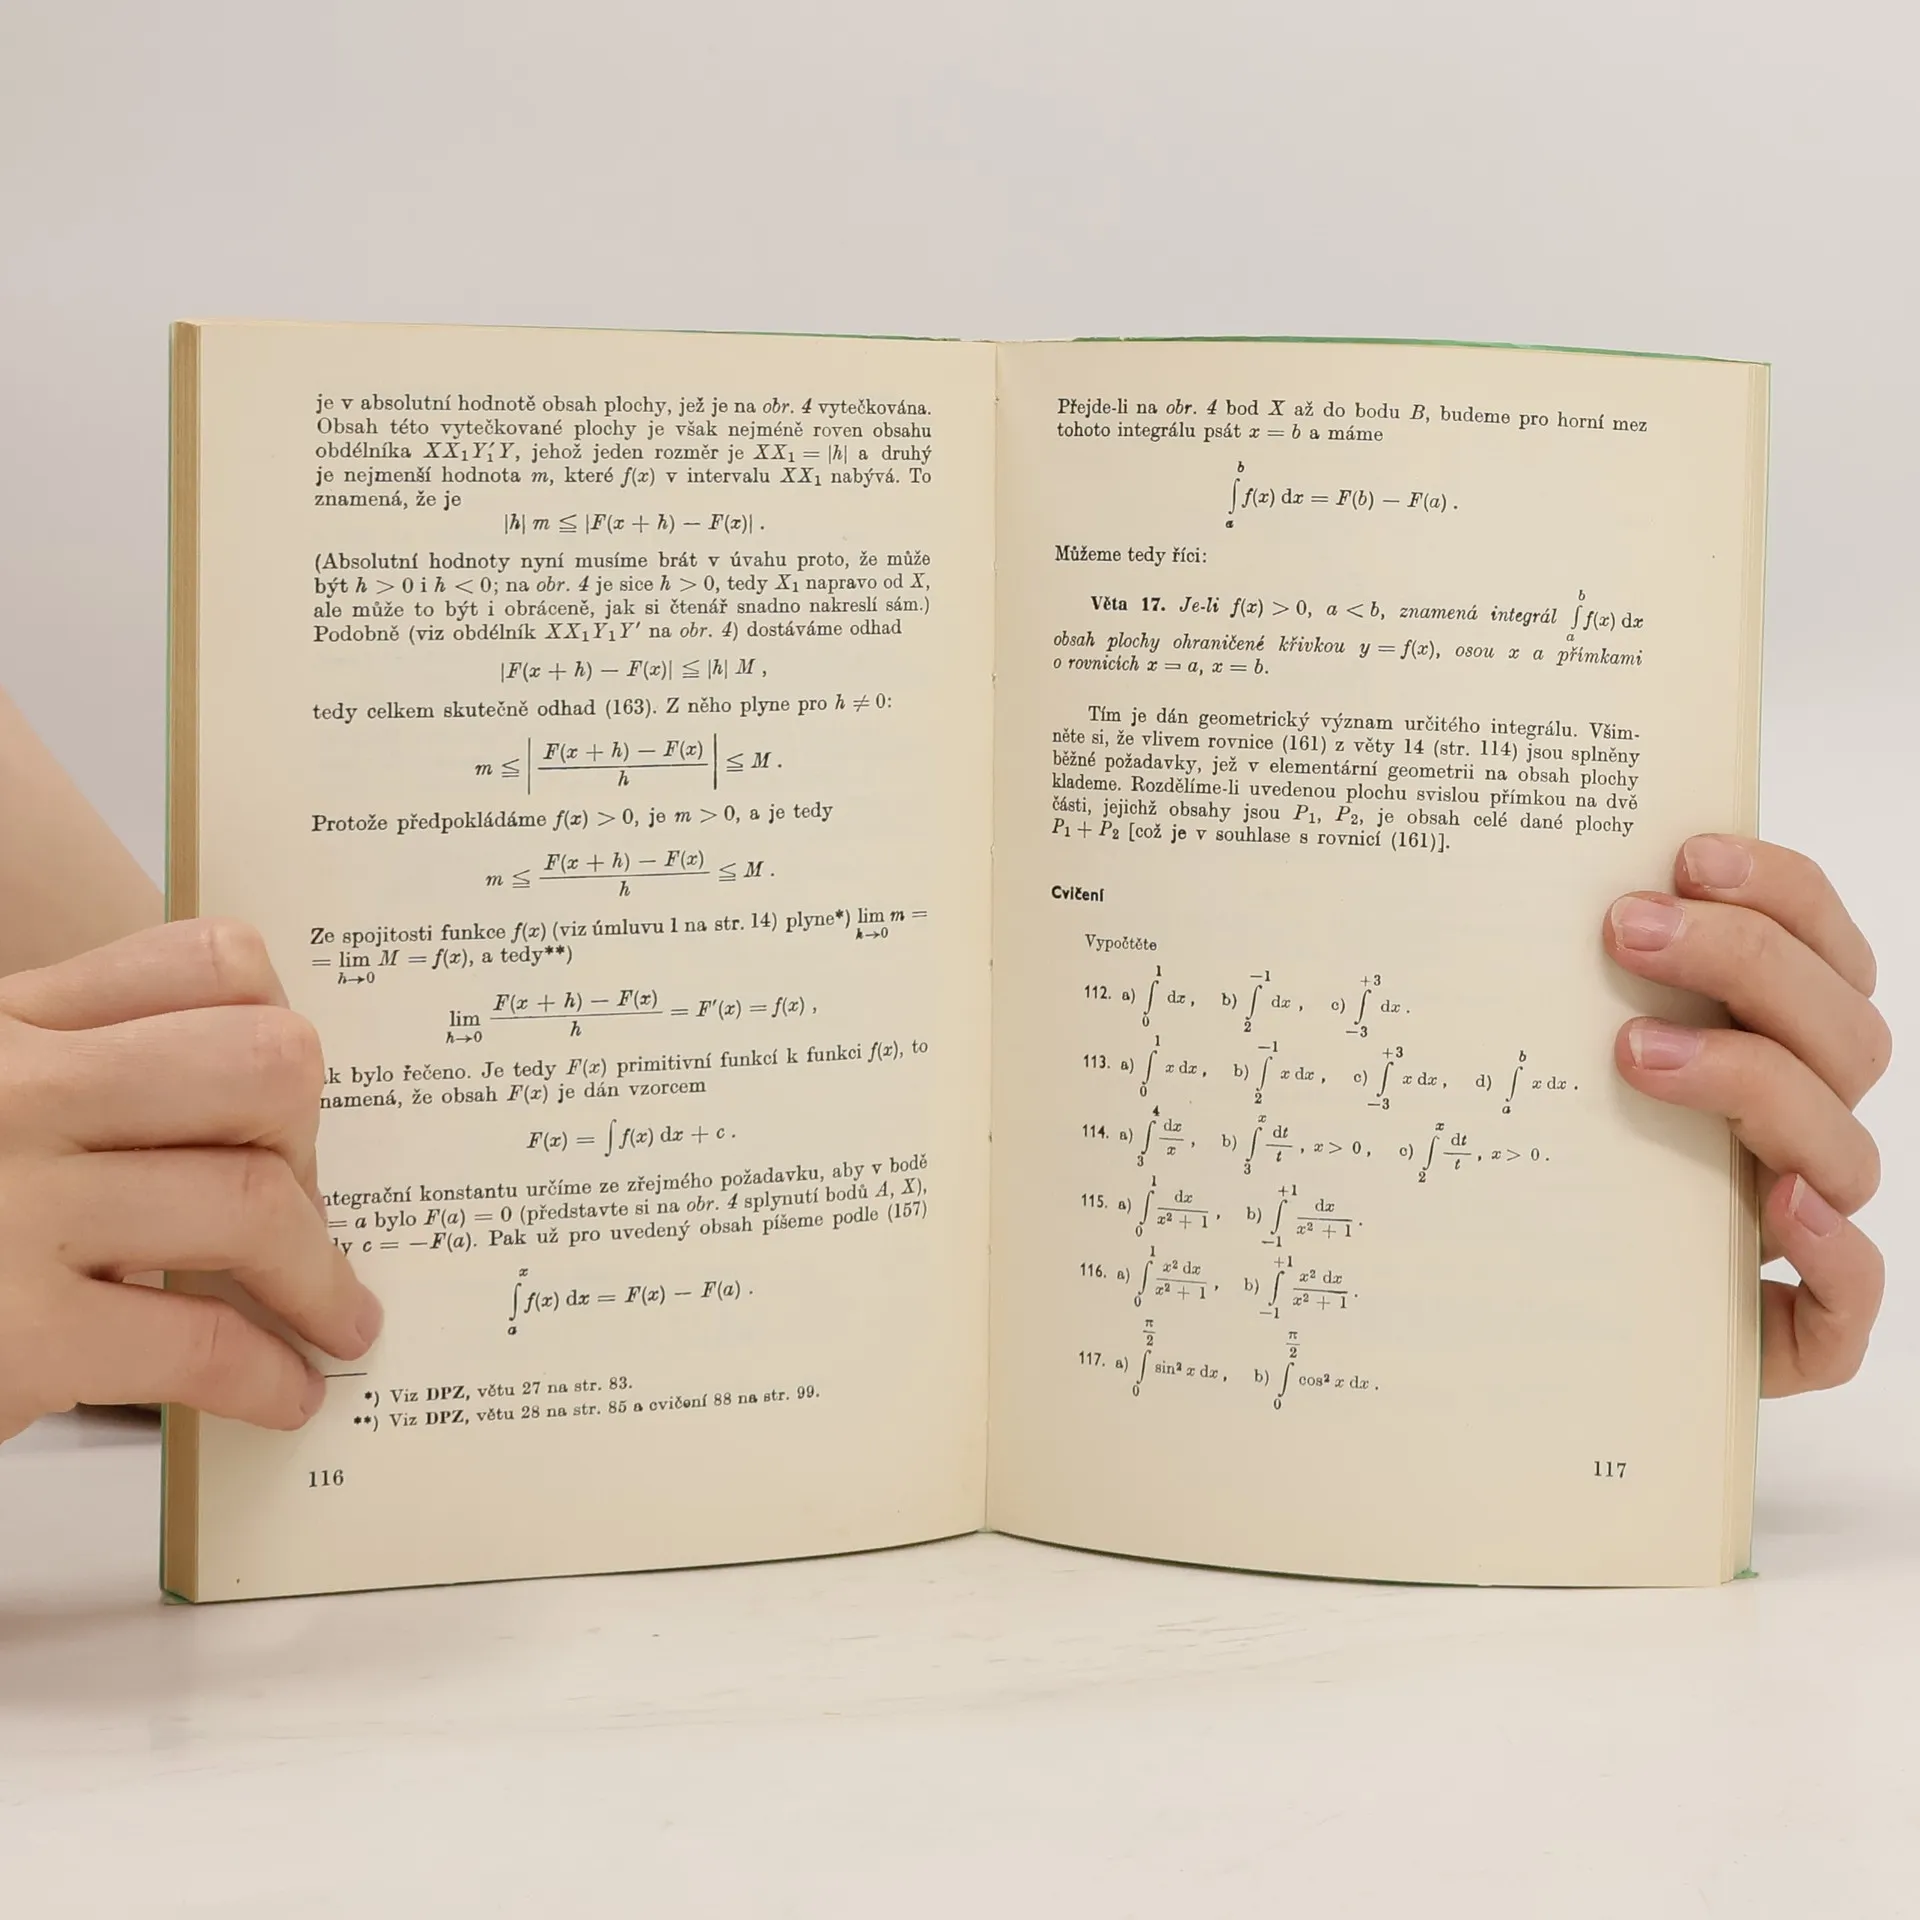 je v absolutní hodnotě obsah plochy, jež je na obr. 4 vytečkována.
Obsah této vytečkované plochy je však nejméně roven obsahu
obdélníka XX₁Y₁′Y, jehož jeden rozměr je XX₁ = |h| a druhý
je nejmenší hodnota m, které f(x) v intervalu XX₁ nabývá. To
znamená, že je
|h| m ≦ |F(x + h) − F(x)| .
(Absolutní hodnoty nyní musíme brát v úvahu proto, že může
být h > 0 i h < 0; na obr. 4 je sice h > 0, tedy X₁ napravo od X,
ale může to být i obráceně, jak si čtenář snadno nakreslí sám.)
Podobně (viz obdélník XX₁Y₁Y′ na obr. 4) dostáváme odhad
|F(x + h) − F(x)| ≦ |h| M ,
tedy celkem skutečně odhad (163). Z něho plyne pro h ≠ 0:
m ≦ | (F(x + h) − F(x)) / h | ≦ M .
Protože předpokládáme f(x) > 0, je m > 0, a je tedy
m ≦ (F(x + h) − F(x)) / h ≦ M .
Ze spojitosti funkce f(x) (viz úmluvu 1 na str. 14) plyne*) lim_{h→0} m =
= lim_{h→0} M = f(x), a tedy**)
lim_{h→0} (F(x + h) − F(x)) / h = F′(x) = f(x) ,
k bylo řečeno. Je tedy F(x) primitivní funkcí k funkci f(x), to
namená, že obsah F(x) je dán vzorcem
F(x) = ∫ f(x) dx + c .
ntegrační konstantu určíme ze zřejmého požadavku, aby v bodě
= a bylo F(a) = 0 (představte si na obr. 4 splynutí bodů A, X),
y c = −F(a). Pak už pro uvedený obsah píšeme podle (157)
∫_a^x f(x) dx = F(x) − F(a) .
*) Viz DPZ, větu 27 na str. 83.
**) Viz DPZ, větu 28 na str. 85 a cvičení 88 na str. 99.
116
Přejde-li na obr. 4 bod X až do bodu B, budeme pro horní mez
tohoto integrálu psát x = b a máme
∫_a^b f(x) dx = F(b) − F(a) .
Můžeme tedy říci:
Věta 17. Je-li f(x) > 0, a < b, znamená integrál ∫_a^b f(x) dx
obsah plochy ohraničené křivkou y = f(x), osou x a přímkami
o rovnicích x = a, x = b.
Tím je dán geometrický význam určitého integrálu. Všim-
něte si, že vlivem rovnice (161) z věty 14 (str. 114) jsou splněny
běžné požadavky, jež v elementární geometrii na obsah plochy
klademe. Rozdělíme-li uvedenou plochu svislou přímkou na dvě
části, jejichž obsahy jsou P₁, P₂, je obsah celé dané plochy
P₁ + P₂ [což je v souhlase s rovnicí (161)].
Cvičení
Vypočtěte
112. a) ∫_0^1 dx , b) ∫_2^{−1} dx , c) ∫_{−3}^{+3} dx .
113. a) ∫_0^1 x dx , b) ∫_2^{−1} x dx , c) ∫_{−3}^{+3} x dx , d) ∫_a^b x dx .
114. a) ∫_3^4 dx/x , b) ∫_3^x dt/t , x > 0 , c) ∫_2^x dt/t , x > 0 .
115. a) ∫_0^1 dx/(x² + 1) , b) ∫_{−1}^{+1} dx/(x² + 1) .
116. a) ∫_0^1 x² dx/(x² + 1) , b) ∫_{−1}^{+1} x² dx/(x² + 1) .
117. a) ∫_0^{π/2} sin² x dx , b) ∫_0^{π/2} cos² x dx .
117